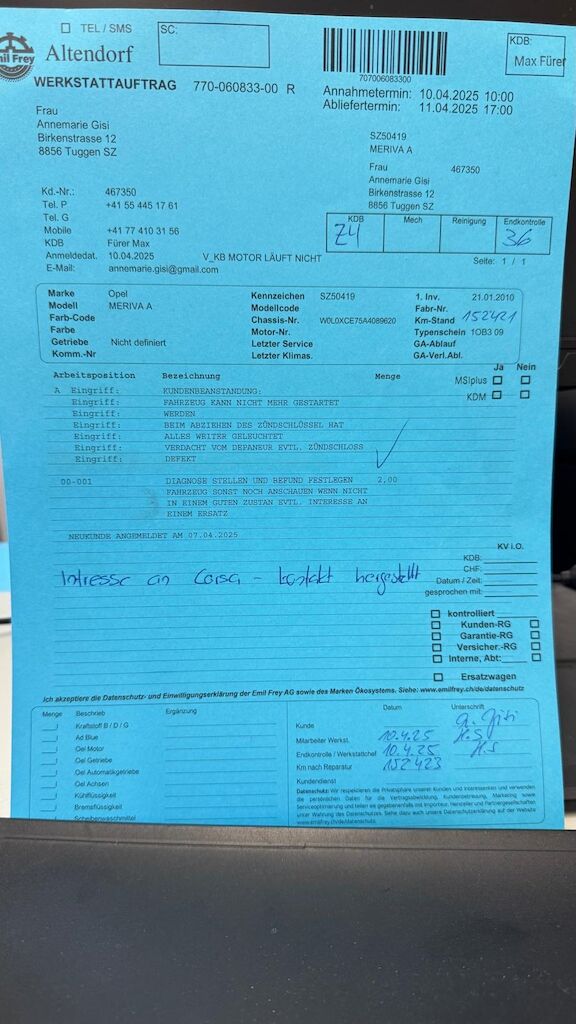 TEL / SMS
SC:
KDB:
Max Fürer
Emil Frey
Altendorf
WERKSTATTAUFTRAG 770-060833-00 R
707006083300
Annahmetermin: 10.04.2025 10:00
Abliefertermin: 11.04.2025 17:00
Frau
Annemarie Gisi
Birkenstrasse 12
8856 Tuggen SZ
SZ50419
MERIVA A
Frau 467350
Annemarie Gisi
Birkenstrasse 12
8856 Tuggen SZ
Kd.-Nr.: 467350
Tel. P +41 55 445 17 61
Tel. G
Mobile +41 77 410 31 56
KDB Fürer Max
Anmeldedat. 10.04.2025 V_KB MOTOR LÄUFT NICHT
E-Mail: annemarie.gisi@gmail.com
KDB Mech Reinigung Endkontrolle
Z4 36
Seite: 1 / 1
Marke Opel Kennzeichen SZ50419 1. Inv. 21.01.2010
Modell MERIVA A Modellcode Fabr-Nr.
Farb-Code Chassis-Nr. W0L0XCE75A4089620 Km-Stand 152421
Farbe Motor-Nr. Typenschein 1OB3 09
Getriebe Nicht definiert Letzter Service GA-Ablauf
Komm.-Nr Letzter Klimas. GA-Verl.Abl.
Ja Nein
MSIplus
KDM
Arbeitsposition Bezeichnung Menge
A Eingriff: KUNDENBEANSTANDUNG:
Eingriff: FAHRZEUG KANN NICHT MEHR GESTARTET
Eingriff: WERDEN
Eingriff: BEIM ABZIEHEN DES ZÜNDSCHLÜSSEL HAT
Eingriff: ALLES WEITER GELEUCHTET
Eingriff: VERDACHT VOM DEPANEUR EVTL. ZÜNDSCHLOSS
Eingriff: DEFEKT
00-001 DIAGNOSE STELLEN UND BEFUND FESTLEGEN 2,00
FAHRZEUG SONST NOCH ANSCHAUEN WENN NICHT
IN EINEM GUTEN ZUSTAN EVTL. INTERESSE AN
EINEM ERSATZ
NEUKUNDE ANGEMELDET AM 07.04.2025
KV i.O.
KDB:
CHF:
Datum / Zeit:
gesprochen mit:
Intresse an Corsa - kontakt hergestellt
kontrolliert
Kunden-RG
Garantie-RG
Versicher.-RG
Interne, Abt:
Ersatzwagen
Ich akzeptiere die Datenschutz- und Einwilligungserklärung der Emil Frey AG sowie des Marken Ökosystems. Siehe: www.emilfrey.ch/de/datenschutz
Menge Beschrieb Ergänzung
Kraftstoff B / D / G
Ad Blue
Oel Motor
Oel Getriebe
Oel Automatikgetriebe
Oel Achsen
Kühlflüssigkeit
Bremsflüssigkeit
Scheibenwaschmittel
Datum Unterschrift
Kunde A. Gisi
Mitarbeiter Werkst. 10.4.25 H.S
Endkontrolle / Werkstattchef 10.4.25 H.S
Km nach Reparatur 152423
Kundendienst
Datenschutz: Wir respektieren die Privatsphäre unserer Kunden und Interessenten und verwenden
die persönlichen Daten für die Vertragsabwicklung, Kundenbetreuung, Marketing sowie
Serviceoptimierung und teilen sie gegebenenfalls mit Importeur, Hersteller und Partnergesellschaften
unter Wahrung des Datenschutzes. Siehe dazu auch unsere Datenschutzerklärung auf der Website
www.emilfrey.ch/de/datenschutz.